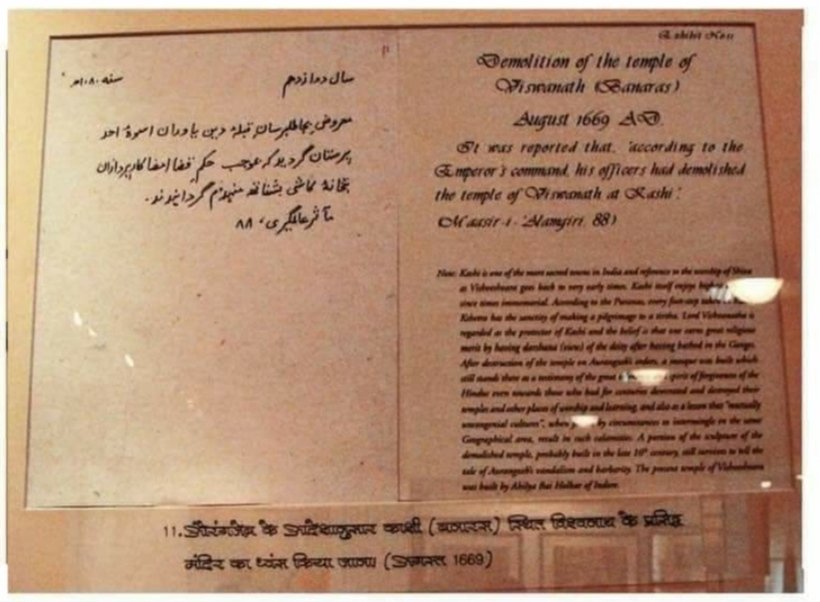 سال دوازدهم سنه ۱۰۸۰
معروض
پرستان گردید که بموجب حکم کارپردازان
منهدم گردانیدند.
مآثر عالمگیری، ۸۸
Exhibit No 11
Demolition of the temple of
Viswanath (Banaras)
August 1669 AD.
It was reported that, 'according to the
Emperor's command, his officers had demolished
the temple of Viswanath at Kashi'.
(Maasir-i-'Alamgiri, 88)
Note: Kashi is one of the most sacred towns in India and reference to the worship of Shiva
as Vishveshvara goes back to very early times. Kashi itself enjoys
since times immemorial. According to the Puranas, every foot-step taken
Kshetra has the sanctity of making a pilgrimage to a tirtha. Lord Vishvanatha is
regarded as the protector of Kashi and the belief is that one earns great religious
merit by having darshana (view) of the deity after having bathed in the Ganges.
After destruction of the temple on Aurangzeb's orders, a mosque was built which
still stands there as a testimony of the great spirit of forgiveness of the
Hindus even towards those who had for centuries desecrated and destroyed their
temples and other places of worship and learning, and also as a lesson that "mutually
uncongenial cultures", when by circumstances to intermingle in the same
Geographical area, result in such calamities. A portion of the sculpture of the
demolished temple, probably built in the late 16th century, still survives to tell the
tale of Aurangzeb's vandalism and barbarity. The present temple of Vishveshvara
was built by Ahilya Bai Holkar of Indore.
11. औरंगजेब के आदेशानुसार काशी (बनारस) स्थित विश्वनाथ के प्रसिद्ध
मंदिर का ध्वंस किया जाना (अगस्त 1669)